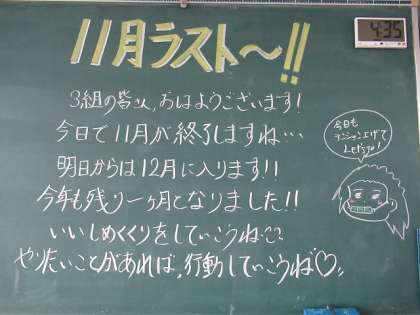 11月ラスト〜!!
4:35
3組の皆さん、おはようございます!
今日で11月が終了しますね…
明日からは12月に入ります!!
今年も残り一ヶ月となりました!!
いいしめくくりをしていこうね
やりたいことがあれば、行動していこうね♡
今日も
テンション上げて
Let's go!